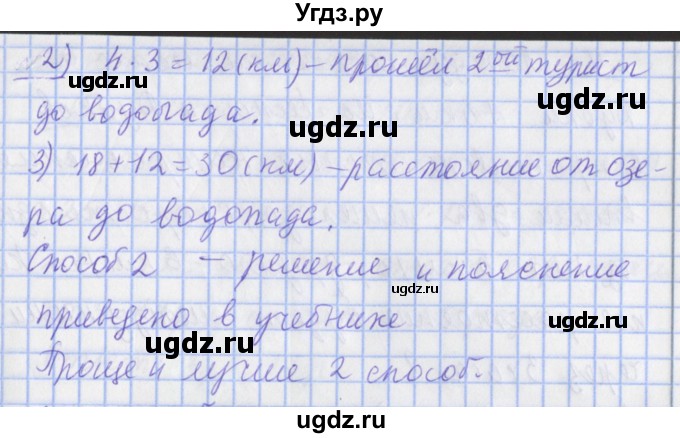 Угдз.ру
2) 4 · 3 = 12 (км) – прошёл 2ой турист
до водопада.
ugdz.ru
ugdz.ru
3) 18 + 12 = 30 (км) – расстояние от озе-
ugdz.ru
ра до водопада.
ugdz.ru
Способ 2 – решение и пояснение
ugdz.ru
приведено в учебнике
ugdz.ru
ugdz.ru
Проще и лучше 2 способ.
ugdz.ru
ugdz.ru